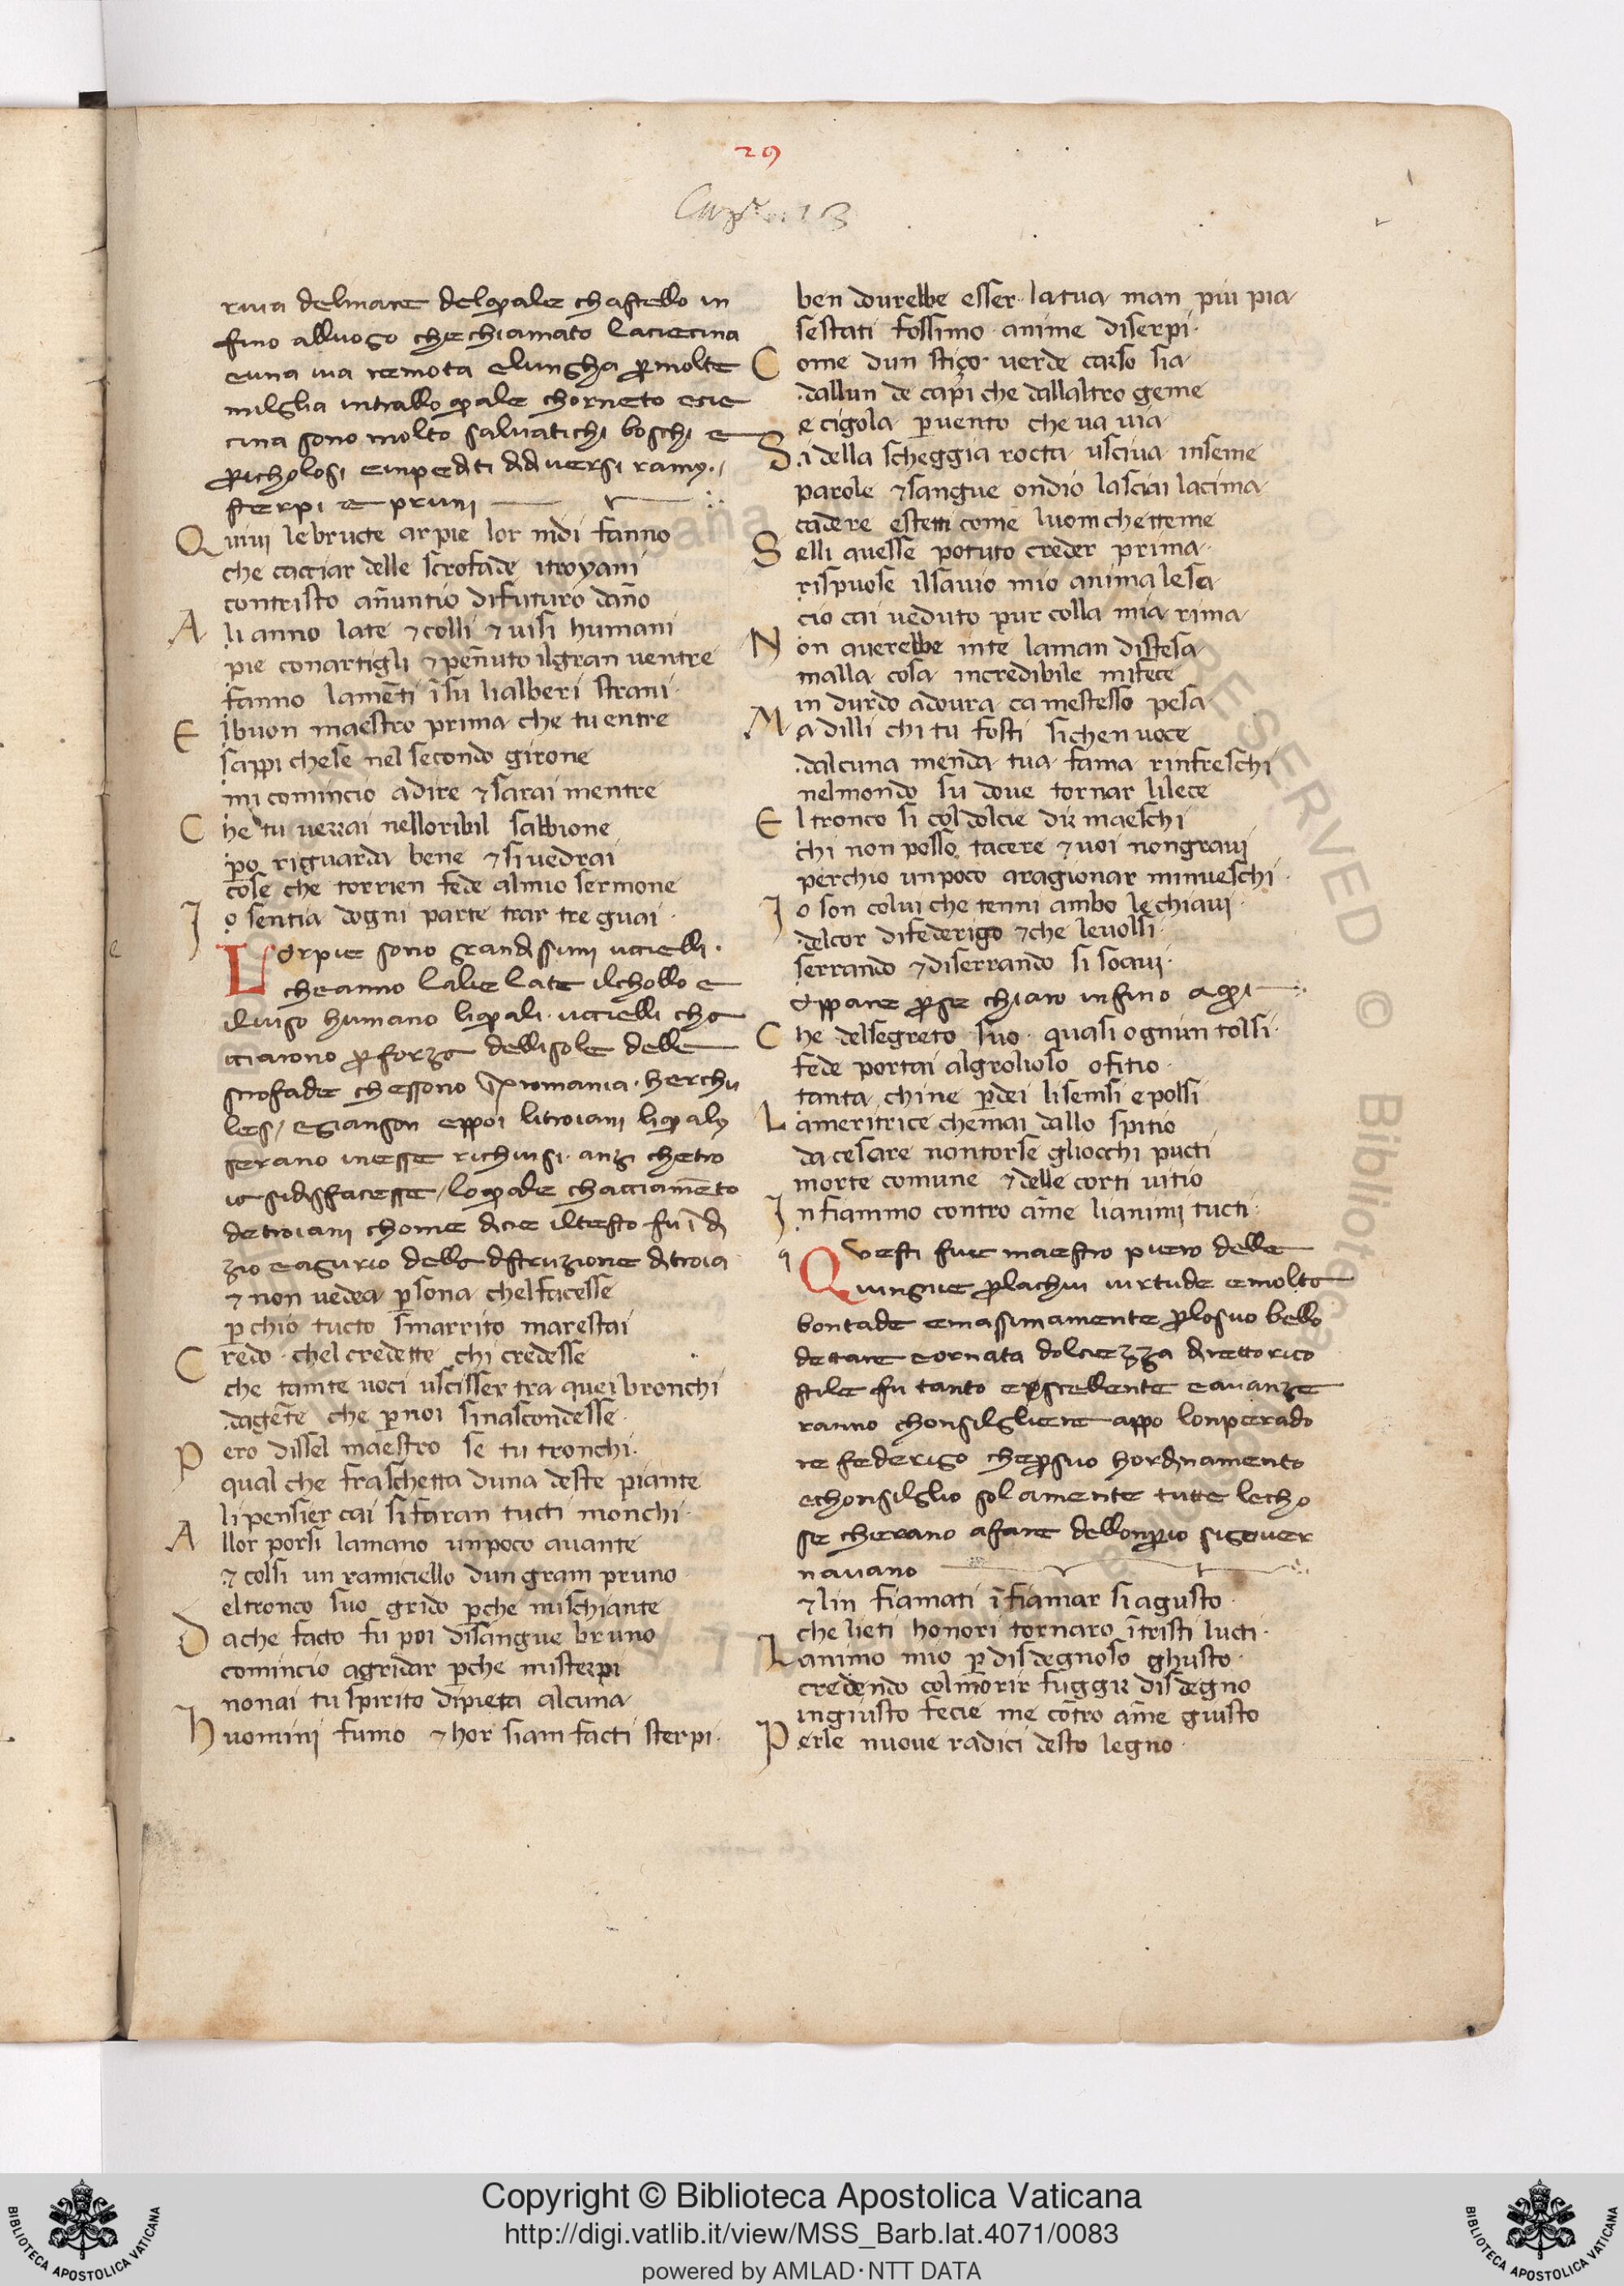 29
riua delmare delquale chastello in
fino alluogo che chiamato laciecina
e una uia remota elungha per molte
milglia intrallo quale chorneto ecie
cina sono molto saluatichi boschi e
pericholosi empediti ddiuersi ramy
sterpi e pruni
Quiui lebructe arpie lor nidi fanno
che cacciar delle scrofade itroyani
contristo anuntio difuturo dano
Ali anno late et colli et uisi humani
pie conartigli et penuto ilgran uentre
fanno lamenti i su lialberi strani
El buon maestro prima che tu entre
sappi chese nel secondo girone
mi comincio adire et sarai mentre
Che tu uerrai nelloribil sabbione
pero riguarda bene et si uedrai
cose che torrien fede almio sermone
Io sentia dogni parte trar tre guai
Larpie sono grandissimi uccielli
cheanno lalie late ilchollo e
iluiso humano liquali uccielli cha
cciarono per forza dellisole delle
strofade chessono in romania herchu
les egianson eppoi litroiani liqualy
serano inesse richiusi anzi chetro
ia sidisfacesse loquale chacciamento
detroiani chome dicie iltesto fu idi
zio eagurio della distruzione ditroia
et non uedea persona chelfacesse
perchio tucto smarrito marestai
Credo chel credette chi credesse
che tamte uoci uscisser tra quei bronchi
dagete che pernoi sinascondesse
Pero dissel maestro se tu tronchi
qual che fraschetta duna deste piante
li pensier cai si faran tucti monchi
Allor porsi lamano unpoco auante
et colsi un ramiciello dun gram pruno
eltronco suo grido perche mischiante
Dache facto fu poi disangue bruno
comincio agridar perche misterpi
nonai tu spirito dipieta alcuna
Huomini fumo et hor siam facti sterpi
ben dourebbe esser latua man piu pia
sestati fossimo anime diserpi
Come dun stiço uerde carso sia
dallun de capi che dallaltro geme
e cigola peruento che ua uia
Si della scheggia rocta usciua inseme
parole et sangue ondio lasciai lacima
cadere estetti come luom chetteme
Selli auesse potuto creder prima
rispuose ilsauio mio anima lesa
cio cai ueduto pur colla mia rima
Non auerebbe inte laman distesa
malla cosa incredibile mifece
in durdo adoura ca mestesso pesa
Ma dilli chi tu fosti sichen uoce
dalcuna menda tua fama rinfreschi
nelmondo su doue tornar lilece
El tronco si col dolcie dir maeschi
chi non posso tacere et uoi nongraui
perchio unpoco aragionar minueschi
Io son colui che tenni ambo lechiaui
delcor difederigo et che leuolsi
serrando et diserrando si soaui
appare per se chiaro infino aqui
Che delsegreto suo quasi ognun tolsi
fede portai algrolioso ofitio
tanta chine perdei lisensi epolsi
Lameritrice chemai dallo spitio
da cesare nontorse gliocchi pucti
morte comune et delle corti uitio
Infiammo contro ame lianimi tucti
Questi fue maestro piero delle
Quingne perlachui uirtude emolta
bontade emassimamente perlosuo bello
dettare eornata dolciezza direttorico
stile fu tanto eprscellente eauanze
ranno chonsilgliere appo lonperado
re federigo chepersuo hordinamento
echonsilglio solamente tutte lecho
se chierano afare dellonperio sigouer
nauano
et lin fiamati ifiamar si agusto
che lieti honori tornaro itristi lucti
Lanimo mio per disdegnoso ghusto
credendo colmorir fuggir disdegno
ingiusto fecie me cotro ame giusto
Perle nuoue radici desto legno
Copyright © Biblioteca Apostolica Vaticana
http://digi.vatlib.it/view/MSS_Barb.lat.4071/0083
powered by AMLAD·NTT DATA